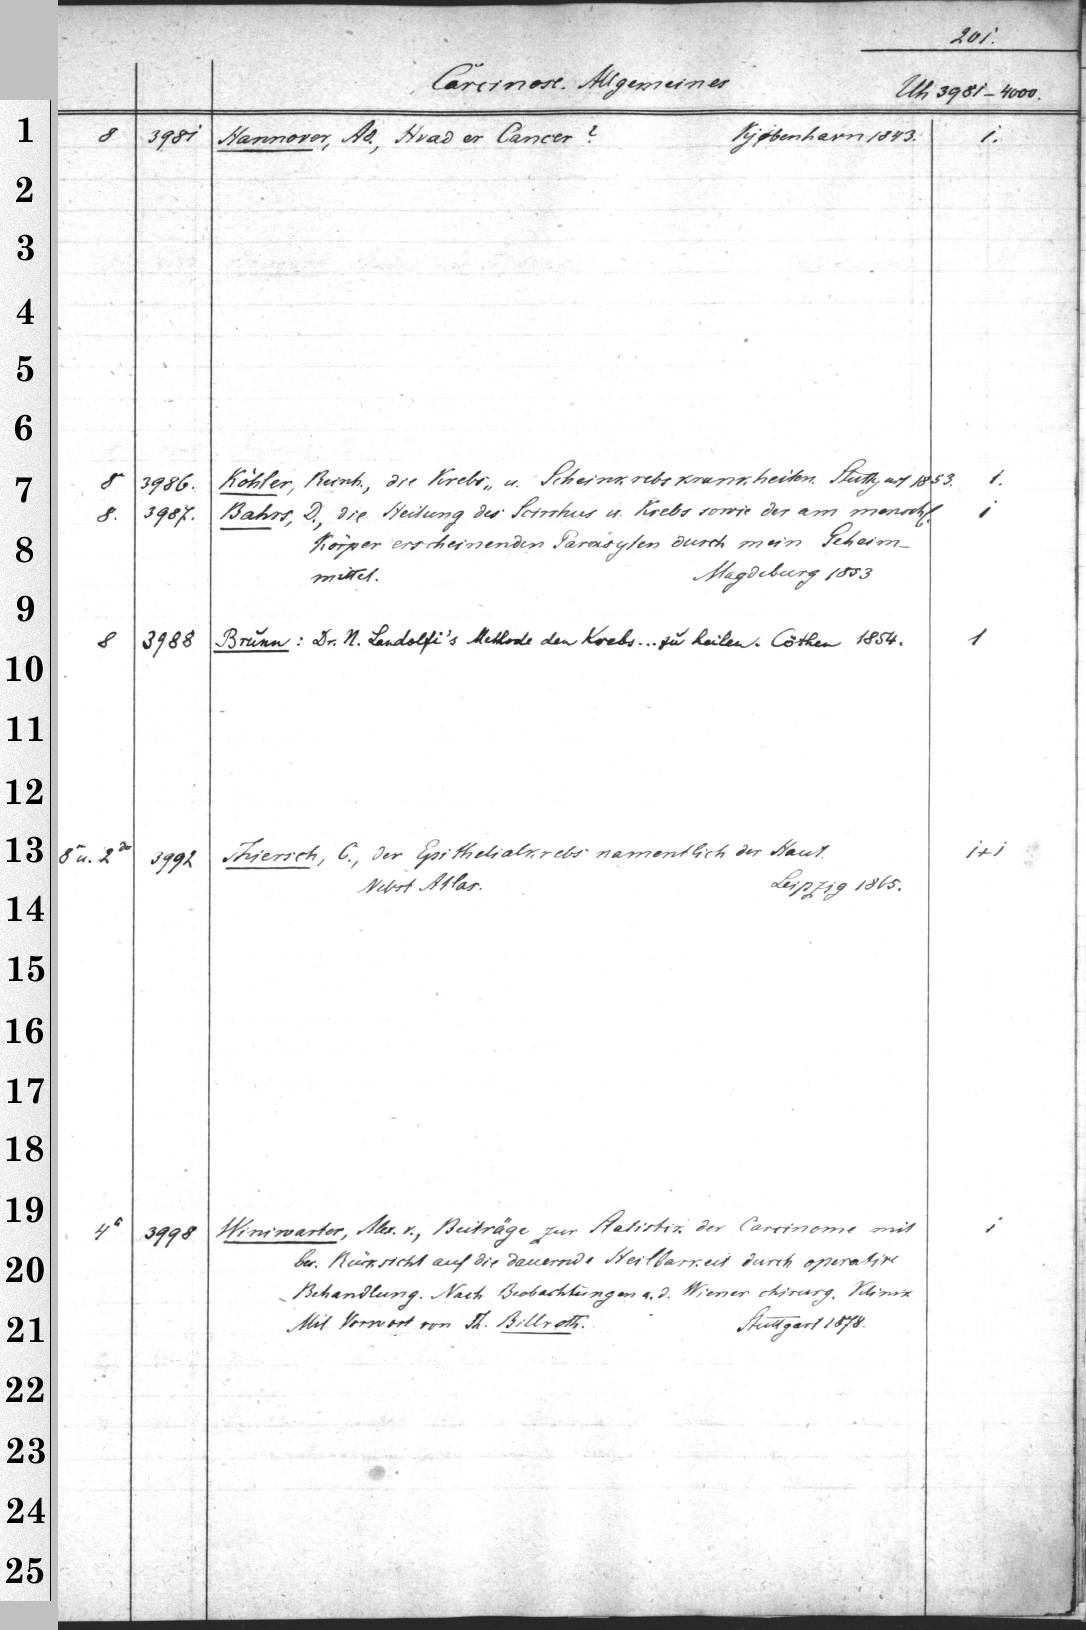 201.
Carcinose. Allgemeines
Uh 3981-4000.
8 3981 Hannover, Ad., Hvad er Cancer? Kjøbenhavn 1843. 1.
8 3986. Köhler, Reinh., die Krebs- u. Scheinkrebskrankheiten. Stuttgart 1853. 1.
8. 3987. Bahrs, D., die Heilung des Scirrhus u. Krebs sowie der am menschl. 1
Körper erscheinenden Parasyten durch mein Geheim-
mittel. Magdeburg 1853
8 3988 Brunn: Dr. N. Landolfi's Methode den Krebs... zu heilen. Cöthen 1854. 1
8° u. 2° 3992 Thiersch, C., der Epithelialkrebs namentlich der Haut. 1+1
Nebst Atlas. Leipzig 1865.
4° 3998 Winiwarter, Alex. v., Beiträge zur Statistik der Carcinome mit 1
bes. Rücksicht auf die dauernde Heilbarkeit durch operative
Behandlung. Nach Beobachtungen a. d. Wiener chirurg. Klinik
Mit Vorwort von Th. Billroth. Stuttgart 1878.
1
2
3
4
5
6
7
8
9
10
11
12
13
14
15
16
17
18
19
20
21
22
23
24
25